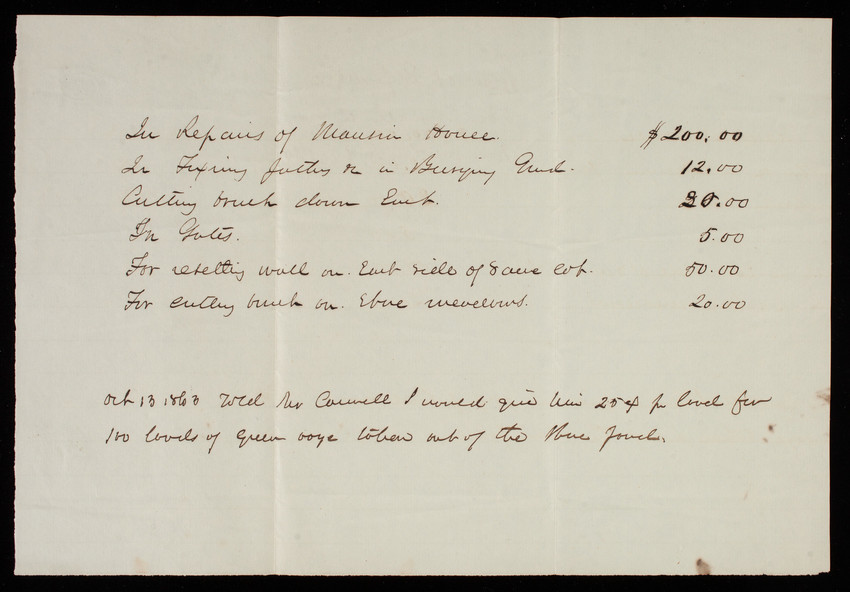 In Repairs of Mansion House. $200.00
In Fixing in Burying Grnd. 12.00
Cutting brush down East. 20.00
In Gates. 5.00
For resetting wall on East side of lot. 50.00
For cutting brush on meadows. 20.00
Oct 13 1863 Told Mr Connell I would give him 25 ¢ pr load for
100 loads of green taken out of the pond.